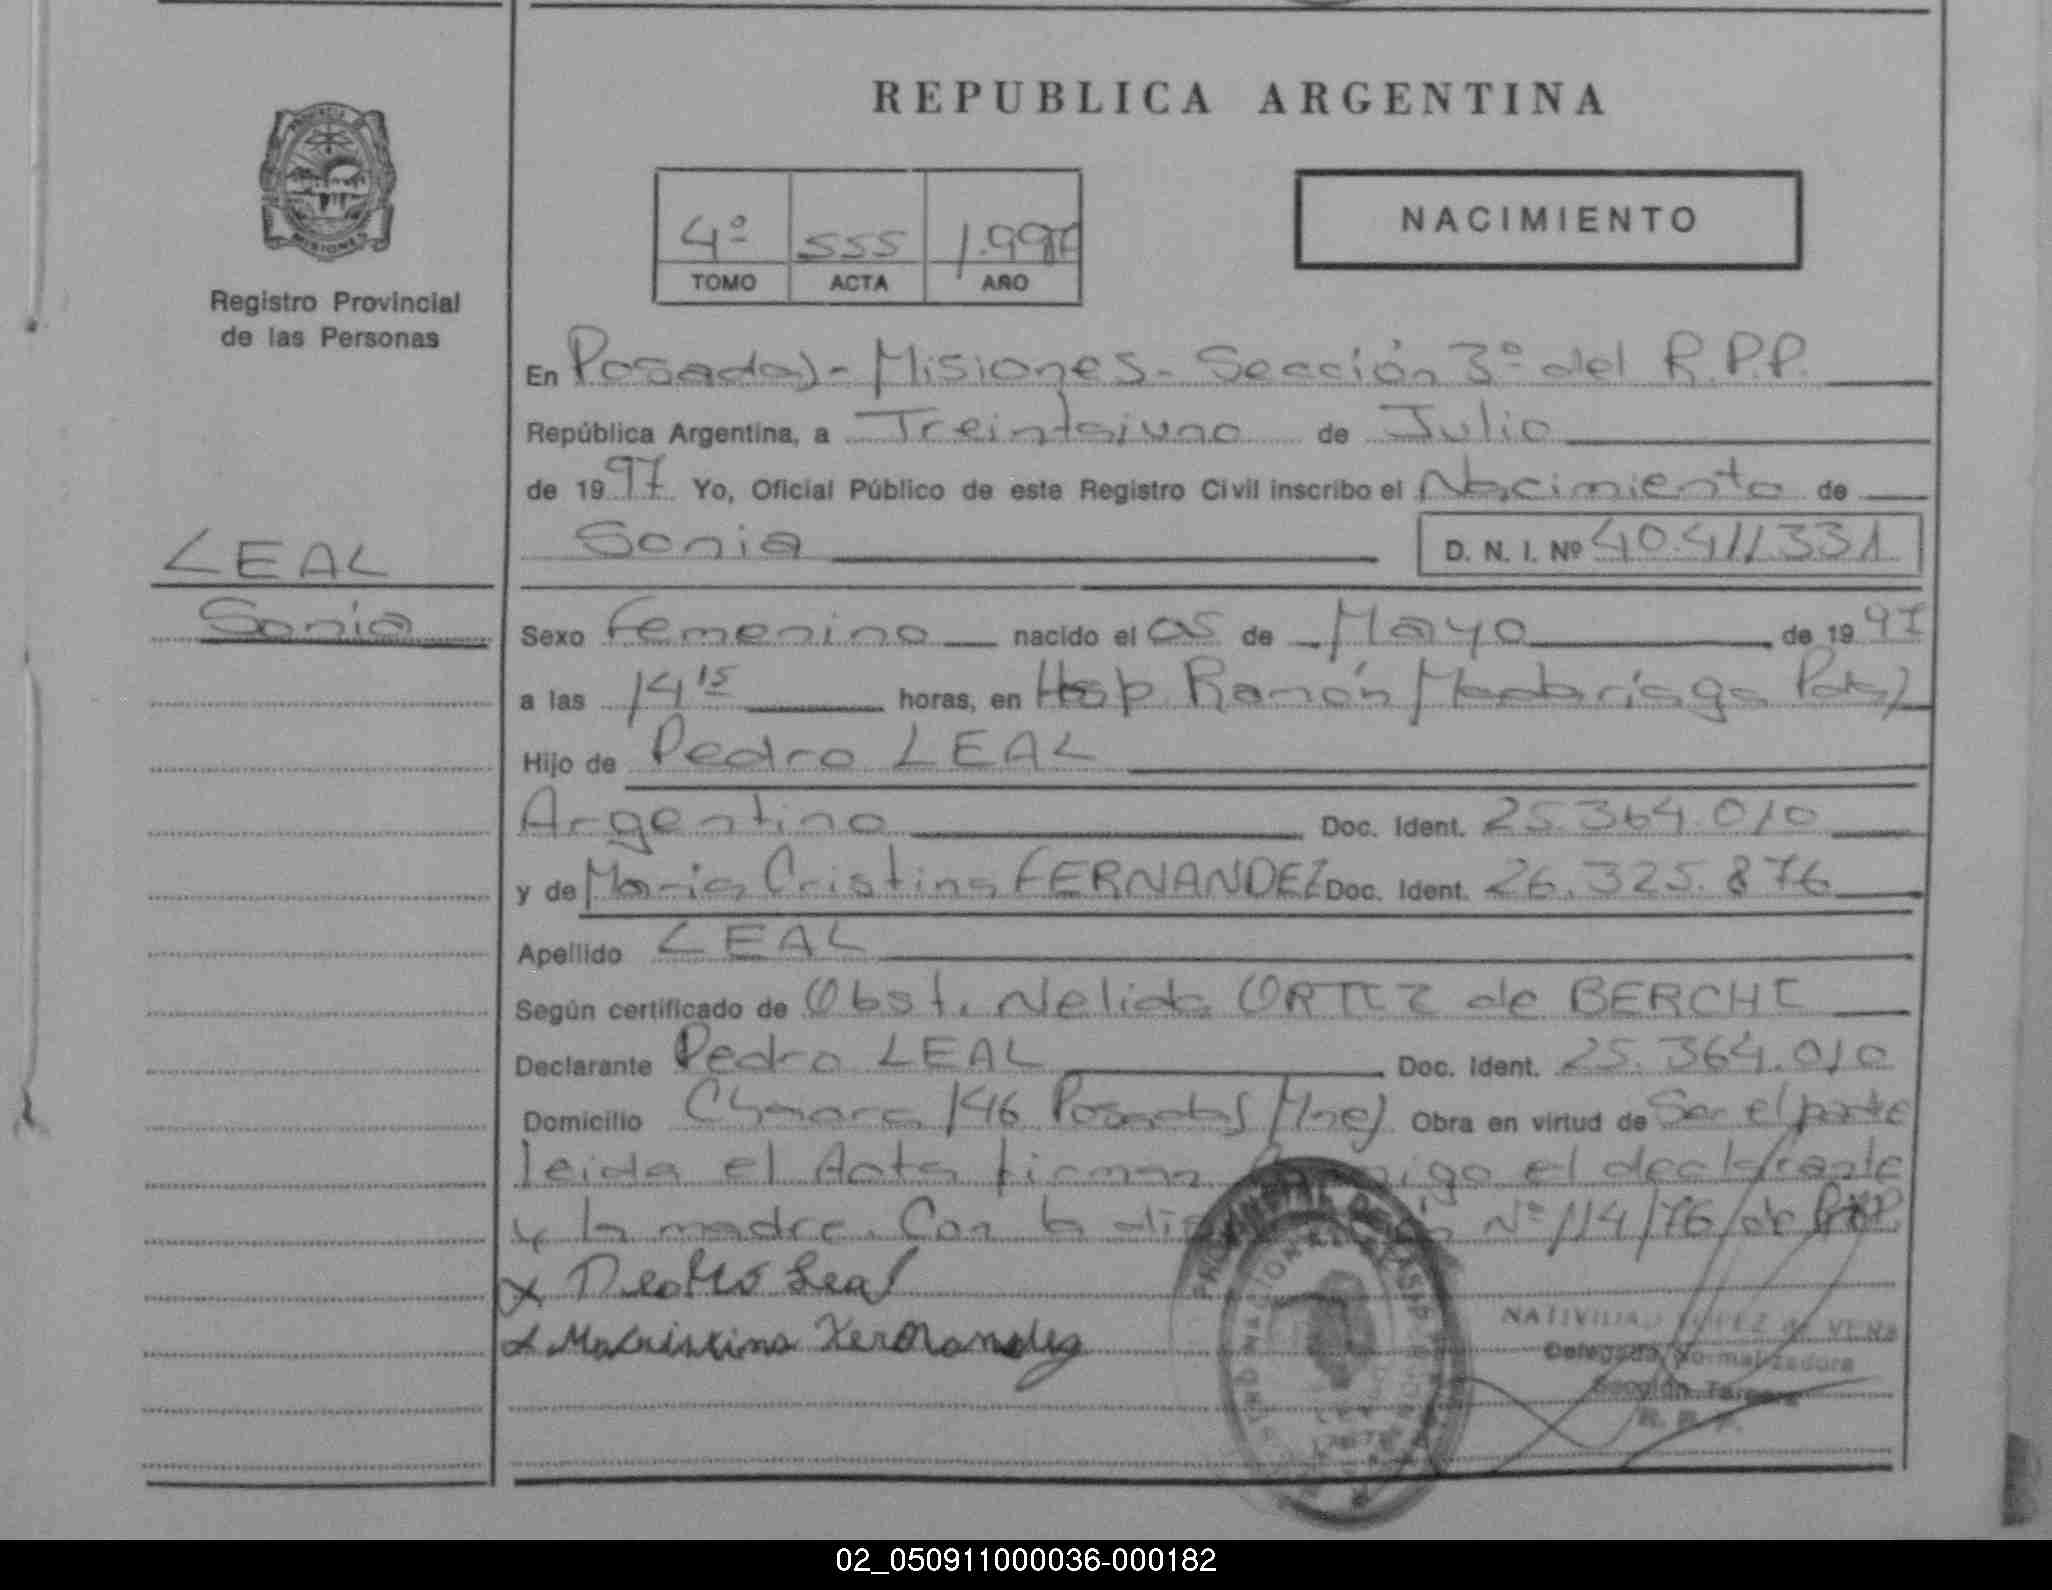 REPUBLICA ARGENTINA
PROVINCIA DE
MISIONES
Registro Provincial
de las Personas
4º 555 1.997
TOMO ACTA AÑO
NACIMIENTO
En Posadas - Misiones - Sección 3º del R.P.P.
República Argentina, a Treintaiuno de Julio
de 1997 Yo, Oficial Público de este Registro Civil inscribo el Nacimiento de
Sonia D. N. I. Nº 40.411.331
LEAL
Sonia
Sexo Femenino nacido el 05 de Mayo de 1997
a las 14 15 horas, en Hosp. Ramón Madariaga Pdas)
Hijo de Pedro LEAL
Argentino Doc. Ident. 25.364.010
y de Maria Cristina FERNANDEZ Doc. Ident. 26.325.876
Apellido LEAL
Según certificado de Obst. Nelida ORTIZ de BERCHI
Declarante Pedro LEAL Doc. Ident. 25.364.010
Domicilio Chacra 146 Posadas (Mnes) Obra en virtud de Ser el padre
leida el Acta firman el declarante
y la madre. Con la Nº 114/76 de R.P.P.
x Pedro Leal
x Ma Cristina Fernandez
NATIVIDAD LOPEZ de VERA
Delegada Normalizadora
Sección Tercera
R. P. P.
02_050911000036-000182